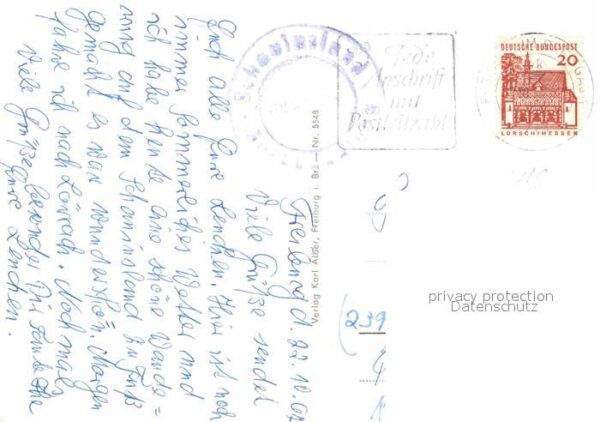 Freiburg d. 22.10.67
Viele Grüße sendet
Euch alle Eure Lenchen. Hier ist noch
immer sommerliches Wetter und
ich habe heute eine schöne Wande=
rung auf dem Schauinsland zu Fuß
gemacht es war wunderschön. Morgen
fahre ich nach Lörrach. Nochmal
viele Grüße besonders
Eure Lenchen.
Schauinsland
Verlag Karl Alber, Freiburg i. Br. — Nr. 5548
Jede
Anschrift
mit
Postleitzahl
DEUTSCHE BUNDESPOST
20
LORSCH/HESSEN
(239
privacy protection
Datenschutz